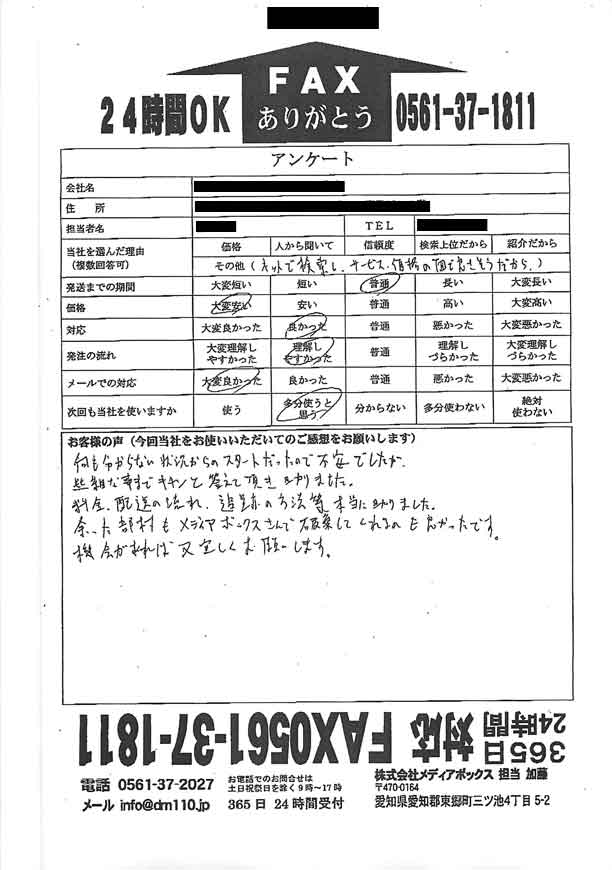 FAX
ありがとう
24時間OK
0561-37-1811
アンケート
会社名
住 所
担当者名 TEL
当社を選んだ理由 (複数回答可) 価格 人から聞いて 信頼度 検索上位だから 紹介だから
その他(ネットで検索し、サービス、価格の面で良さそうだから。)
発送までの期間 大変短い 短い 普通 長い 大変長い
価格 大変安い 安い 普通 高い 大変高い
対応 大変良かった 良かった 普通 悪かった 大変悪かった
発注の流れ 大変理解しやすかった 理解しやすかった 普通 理解しづらかった 大変理解しづらかった
メールでの対応 大変良かった 良かった 普通 悪かった 大変悪かった
次回も当社を使いますか 使う 多分使うと思う 分からない 多分使わない 絶対使わない
お客様の声(今回当社をお使いいただいてのご感想をお願いします)
何も分からない状況からのスタートだったので不安でしたが、
些細な事までキチンと答えて頂き助かりました。
料金、配送の流れ、追跡の方法等 本当に助かりました。
余った部材もメディアボックスさんで破棄してくれるのも良かったです。
機会があれば又宜しくお願いします。
365日 24時間 対応 FAX0561-37-1811
電話 0561-37-2027
メール info@dm110.jp
お電話でのお問合せは
土日祝祭日を除く9時~17時
365日 24時間受付
株式会社メディアボックス 担当 加藤
〒470-0164
愛知県愛知郡東郷町三ツ池4丁目5-2